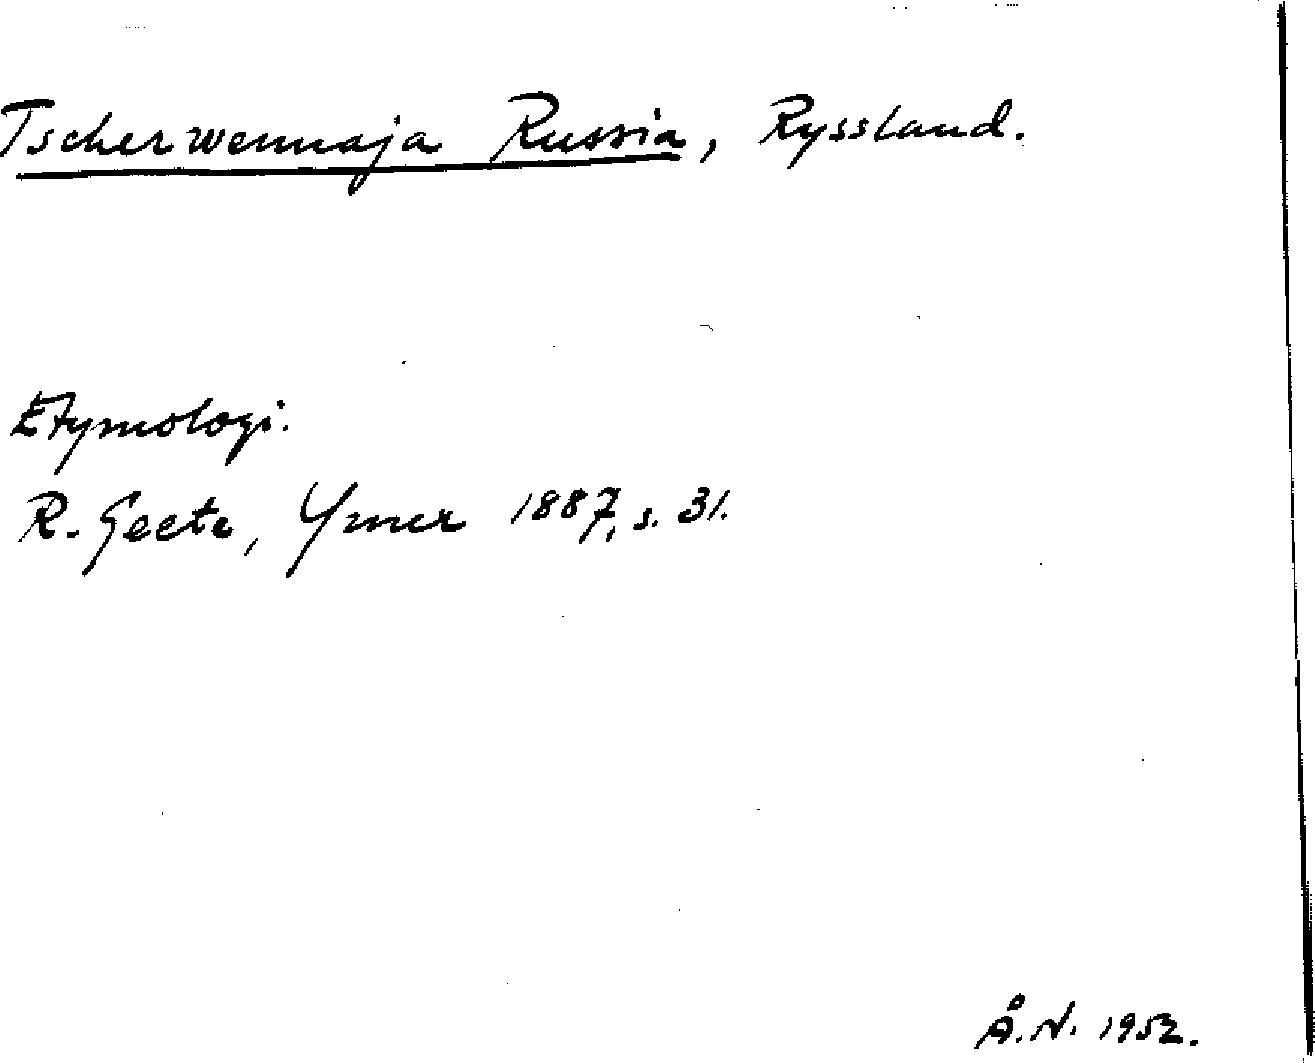 Tscherwennaja Russia, Ryssland.
Etymologi.
R. Geete, Ymer 1887, s. 31.
Å.N. 1952.